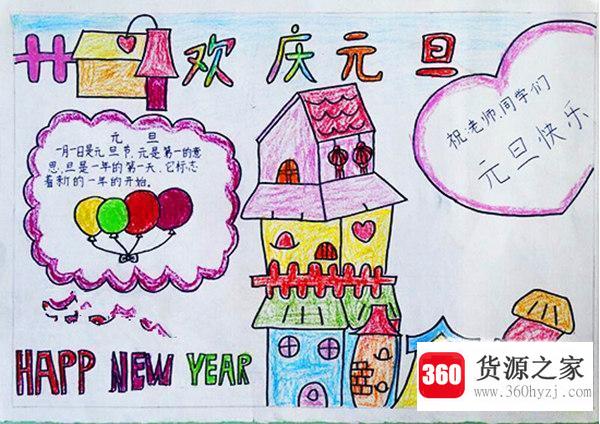 欢庆元旦
祝老师,同学们
元旦快乐
元 旦
一月一日是元旦节,元是第一的意
思,旦是一年的第一天,它标志
着新的一年的开始。
HAPP NEW YEAR
360 货源之家
www.360hyzj.com